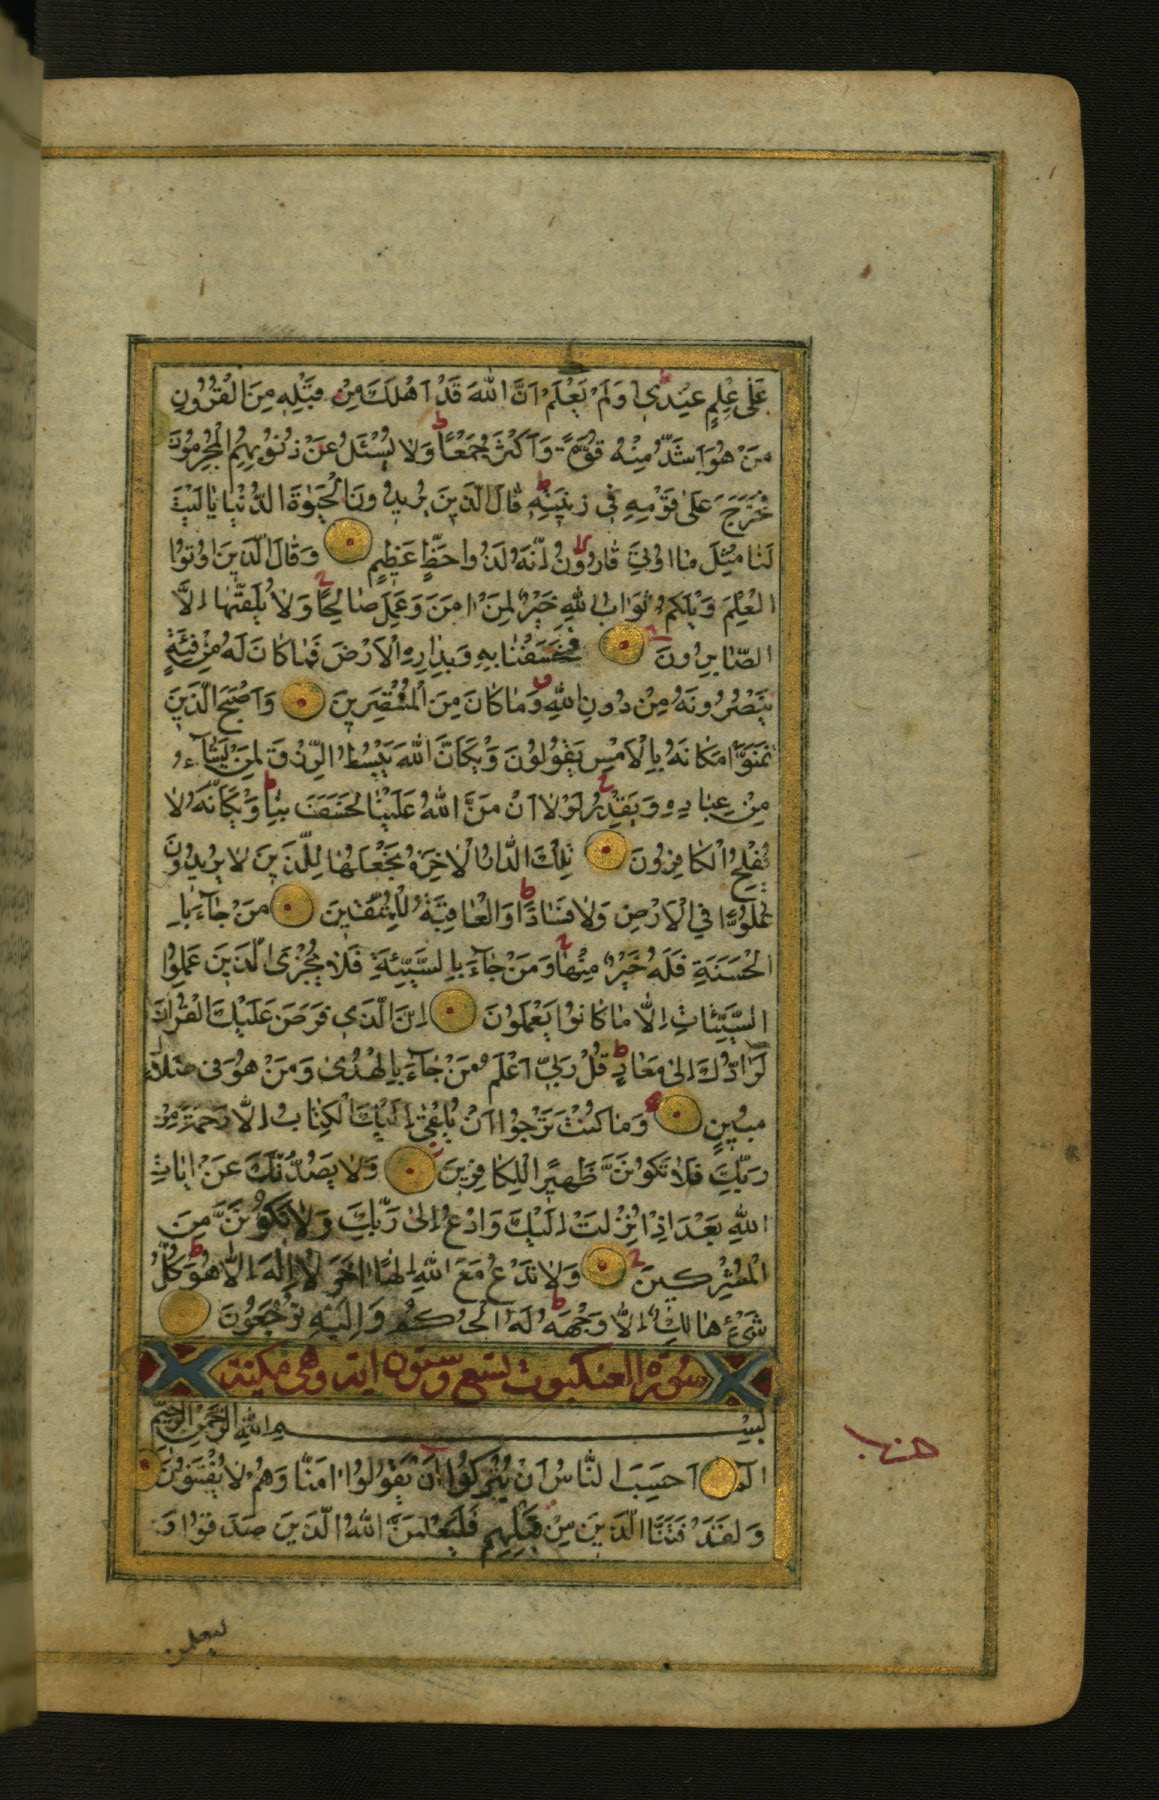 عَلٰى عِلْمٍ عِنْدٖى اَوَلَمْ يَعْلَمْ اَنَّ اللّٰهَ قَدْ اَهْلَكَ مِنْ قَبْلِهٖ مِنَ الْقُرُونِ
مَنْ هُوَ اَشَدُّ مِنْهُ قُوَّةً وَاَكْثَرُ جَمْعًا وَلَا يُسْئَلُ عَنْ ذُنُوبِهِمُ الْمُجْرِمُونَ
فَخَرَجَ عَلٰى قَوْمِهٖ فٖى زٖينَتِهٖ قَالَ الَّذٖينَ يُرٖيدُونَ الْحَيٰوةَ الدُّنْيَا يَا لَيْتَ
لَنَا مِثْلَ مَا اُوتِىَ قَارُونُ اِنَّهُ لَذُوا حَظٍّ عَظٖيمٍ وَقَالَ الَّذٖينَ اُوتُوا
الْعِلْمَ وَيْلَكُمْ ثَوَابُ اللّٰهِ خَيْرٌ لِمَنْ اٰمَنَ وَعَمِلَ صَالِحًا وَلَا يُلَقّٰيهَا اِلَّا
الصَّابِرُونَ فَخَسَفْنَا بِهٖ وَبِدَارِهِ الْاَرْضَ فَمَا كَانَ لَهُ مِنْ فِئَةٍ
يَنْصُرُونَهُ مِنْ دُونِ اللّٰهِ وَمَا كَانَ مِنَ الْمُنْتَصِرٖينَ وَاَصْبَحَ الَّذٖينَ
تَمَنَّوْا مَكَانَهُ بِالْاَمْسِ يَقُولُونَ وَيْكَاَنَّ اللّٰهَ يَبْسُطُ الرِّزْقَ لِمَنْ يَشَاءُ
مِنْ عِبَادِهٖ وَيَقْدِرُ لَوْلَا اَنْ مَنَّ اللّٰهُ عَلَيْنَا لَخَسَفَ بِنَا وَيْكَاَنَّهُ لَا
يُفْلِحُ الْكَافِرُونَ تِلْكَ الدَّارُ الْاٰخِرَةُ نَجْعَلُهَا لِلَّذٖينَ لَا يُرٖيدُونَ
عُلُوًّا فِى الْاَرْضِ وَلَا فَسَادًا وَالْعَاقِبَةُ لِلْمُتَّقٖينَ مَنْ جَاءَ بِا
لْحَسَنَةِ فَلَهُ خَيْرٌ مِنْهَا وَمَنْ جَاءَ بِالسَّيِّئَةِ فَلَا يُجْزَى الَّذٖينَ عَمِلُوا
السَّيِّئَاتِ اِلَّا مَا كَانُوا يَعْمَلُونَ اِنَّ الَّذٖى فَرَضَ عَلَيْكَ الْقُرْاٰنَ
لَرَادُّكَ اِلٰى مَعَادٍ قُلْ رَبّٖى اَعْلَمُ مَنْ جَاءَ بِالْهُدٰى وَمَنْ هُوَ فٖى ضَلَالٍ
مُبٖينٍ وَمَا كُنْتَ تَرْجُوا اَنْ يُلْقٰى اِلَيْكَ الْكِتَابُ اِلَّا رَحْمَةً مِنْ
رَبِّكَ فَلَا تَكُونَنَّ ظَهٖيرًا لِلْكَافِرٖينَ وَلَا يَصُدُّنَّكَ عَنْ اٰيَاتِ
اللّٰهِ بَعْدَ اِذْ اُنْزِلَتْ اِلَيْكَ وَادْعُ اِلٰى رَبِّكَ وَلَا تَكُونَنَّ مِنَ
الْمُشْرِكٖينَ وَلَا تَدْعُ مَعَ اللّٰهِ اِلٰهًا اٰخَرَ لَا اِلٰهَ اِلَّا هُوَ كُلُّ
شَىْءٍ هَالِكٌ اِلَّا وَجْهَهُ لَهُ الْحُكْمُ وَاِلَيْهِ تُرْجَعُونَ
سورة العنكبوت تسع وستون اية وهى مكية
بِسْمِ اللّٰهِ الرَّحْمٰنِ الرَّحٖيمِ
الٓمٓ اَحَسِبَ النَّاسُ اَنْ يُتْرَكُوا اَنْ يَقُولُوا اٰمَنَّا وَهُمْ لَا يُفْتَنُونَ
وَلَقَدْ فَتَنَّا الَّذٖينَ مِنْ قَبْلِهِمْ فَلَيَعْلَمَنَّ اللّٰهُ الَّذٖينَ صَدَقُوا وَ
ليعلمن
حزب